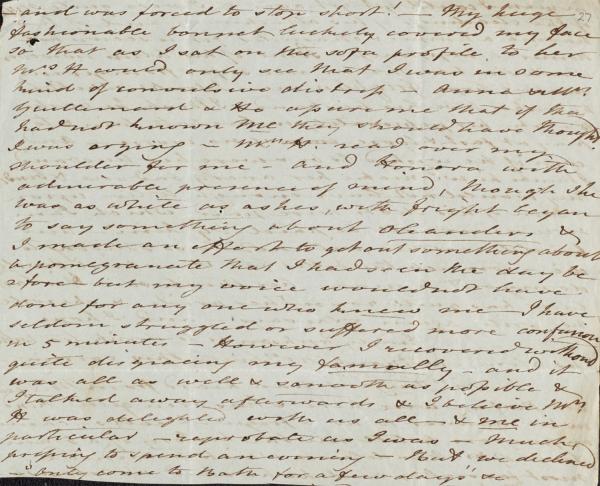 and was forced to stop short! — My huge 27
fashionable bonnet luckily covered my face
so that as I sat on the sofa profile to her
Mrs H could only see that I was in some
kind of convulsive distress — Anna & Mr
& Ho assure me that if they
had not known me they should have thought
I was crying — Mrs H read over my
shoulder for me — and Honora with
admirable presence of mind, though she
was as white as ashes, with fright began
to say something about Oleanders &
I made an effort to get out something about
a pomegranate that I had seen the day be
fore — but my voice would not have
done for any one who knew me — I have
seldom struggled or suffered more confusion
in 5 minutes — However I recovered without
quite disgracing my family — and it
was all as well & smooth as possible &
I talked away afterwards & I believe Mrs
H was delighted with us all — & me in
particular — reprobate as I was — Much
pressing to spend an evening — But we declined
"only come to Bath for a few days" &c